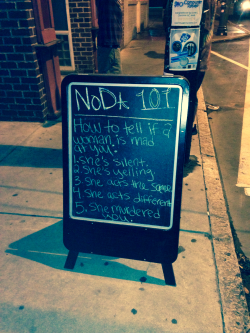 NoDa 101
How to tell if a
woman is mad
at you:
1. she's silent.
2. She's yelling
3 she acts the same
4 she acts different
5. She murdered
you.